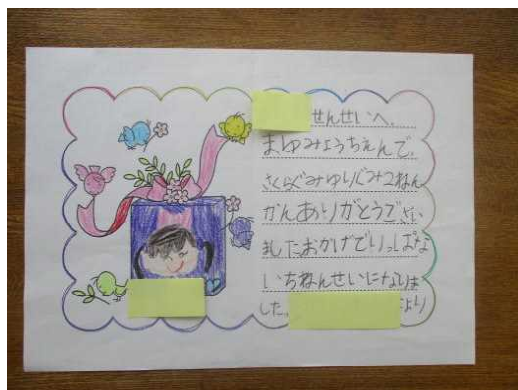 せんせいへ、
まゆみようちえんで、
さくらぐみゆりぐみ2ねん
かんありがとうござい
ましたおかげでりっぱな
いちねんせいになりま
した。
より